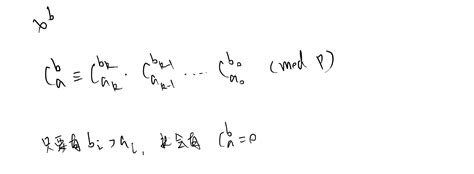 x^b
C_a^b ≡ C_{a_k}^{b_k} · C_{a_{k-1}}^{b_{k-1}} ··· C_{a_0}^{b_0} (mod p)
只要有 b_i > a_i, 就会有 C_a^b = 0